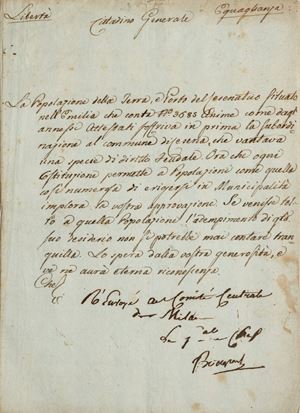 Libertà Eguaglianza
Cittadino Generale
La Popolazione della Terra, e Porto del Cesenatico situata
nell'Emilia che conta N.º 3683 Anime come dagl'
annessi Attestati soffriva in prima la subordi
nazione al Commune di Cesena, che vantava
una specie di diritto Feudale. Ora che ogni
Costituzione permette a Popolazioni come quella
così numerosa di erigersi in Municipalità
implora la vostra approvazione. Se venisse
to a quella Popolazione l'adempimento di
suo desiderio non si potrebbe mai contare tran
quilla. Lo spera dalla vostra generosità, e
ve ne aurà eterna riconoscenza.
au Comité Centrale
de Milan
Le g.al en Chef